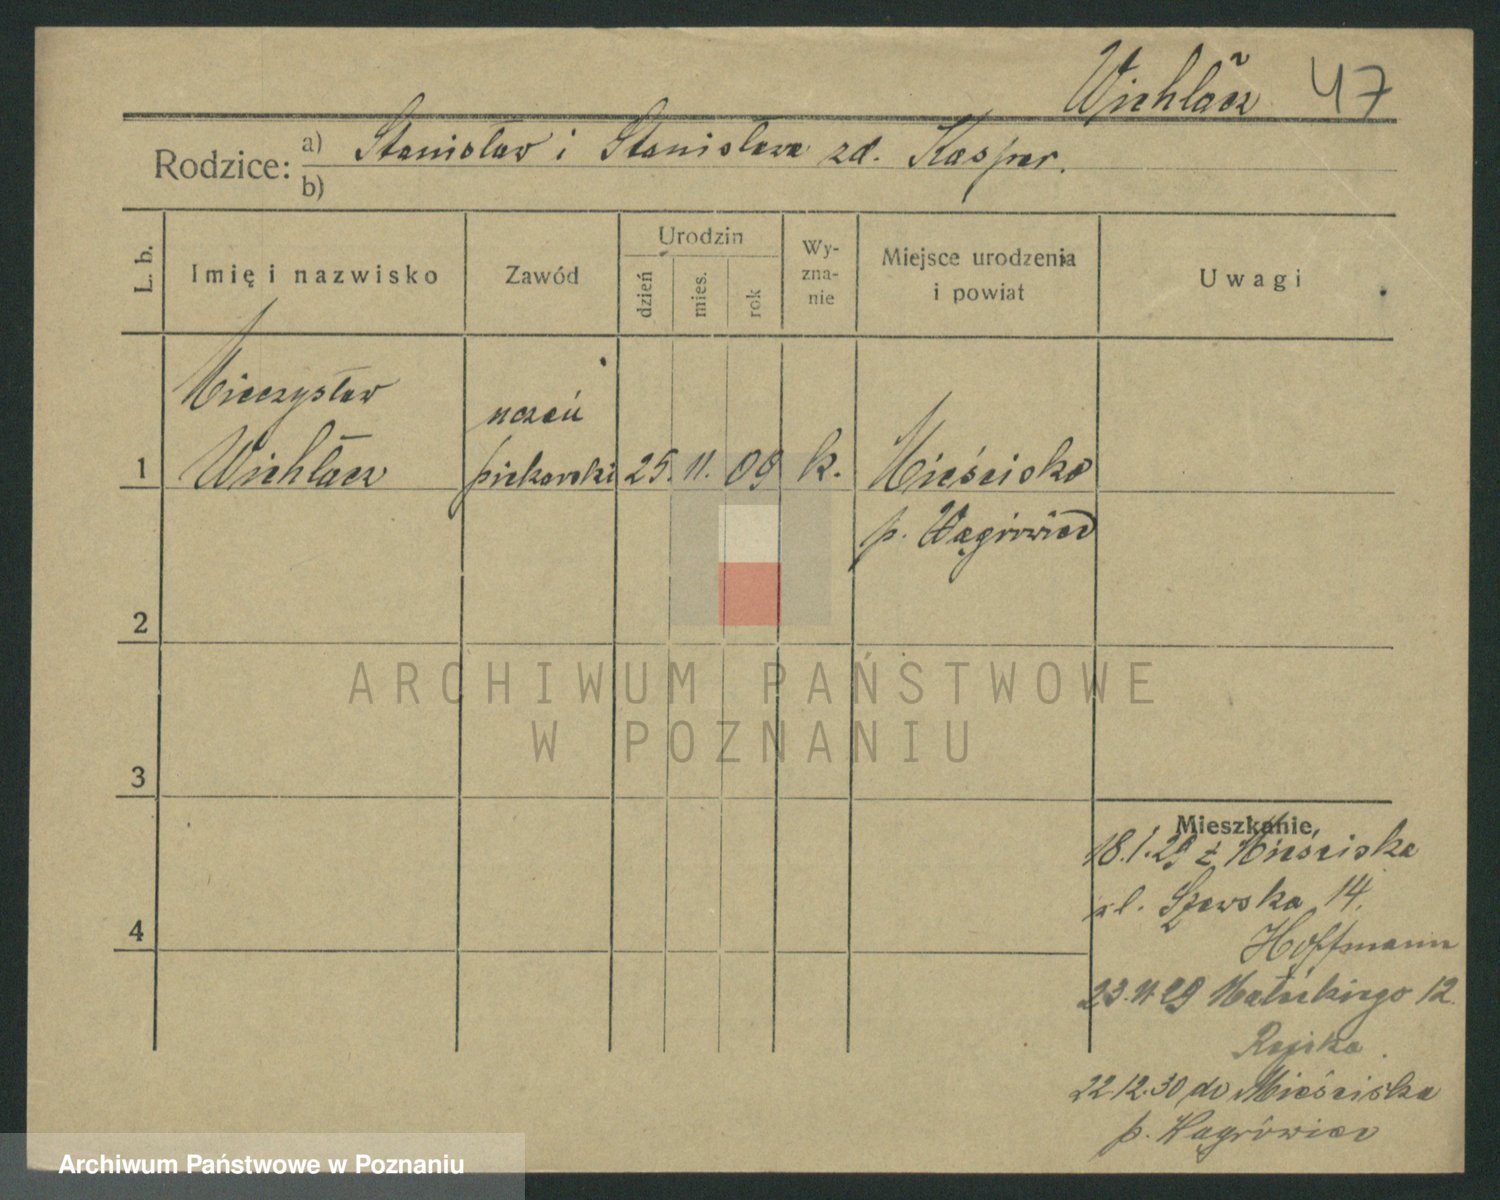 Wichłacz 47
Rodzice: a) Stanisław i Stanisława zd. Kasper.
b)
L. b.
Imię i nazwisko
Zawód
Urodzin
dzień
mies.
rok
Wy-
zna-
nie
Miejsce urodzenia
i powiat
Uwagi
Mieczysław
uczeń
1 Wichłacz piekarski 25. 11. 09 k. Mieścisko
p. Wągrówiec
2
ARCHIWUM PAŃSTWOWE
W POZNANIU
3
Mieszkanie,
18.1.29 z Mieściska
4
ul. Szewska 14.
Hoffmann
23. 4 29 Małeckiego 12.
22 12. 30 do Mieściska
p. Wągrówiec
Archiwum Państwowe w Poznaniu